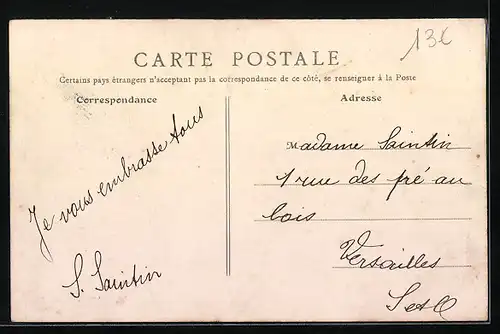 13€
CARTE POSTALE
Certains pays étrangers n'acceptent pas la correspondance de ce côté, se renseigner à la Poste
Correspondance
Je vous embrasse tous
S. Saintin
Adresse
Madame Saintin
1 rue des pré au
bois
Versailles
S et O